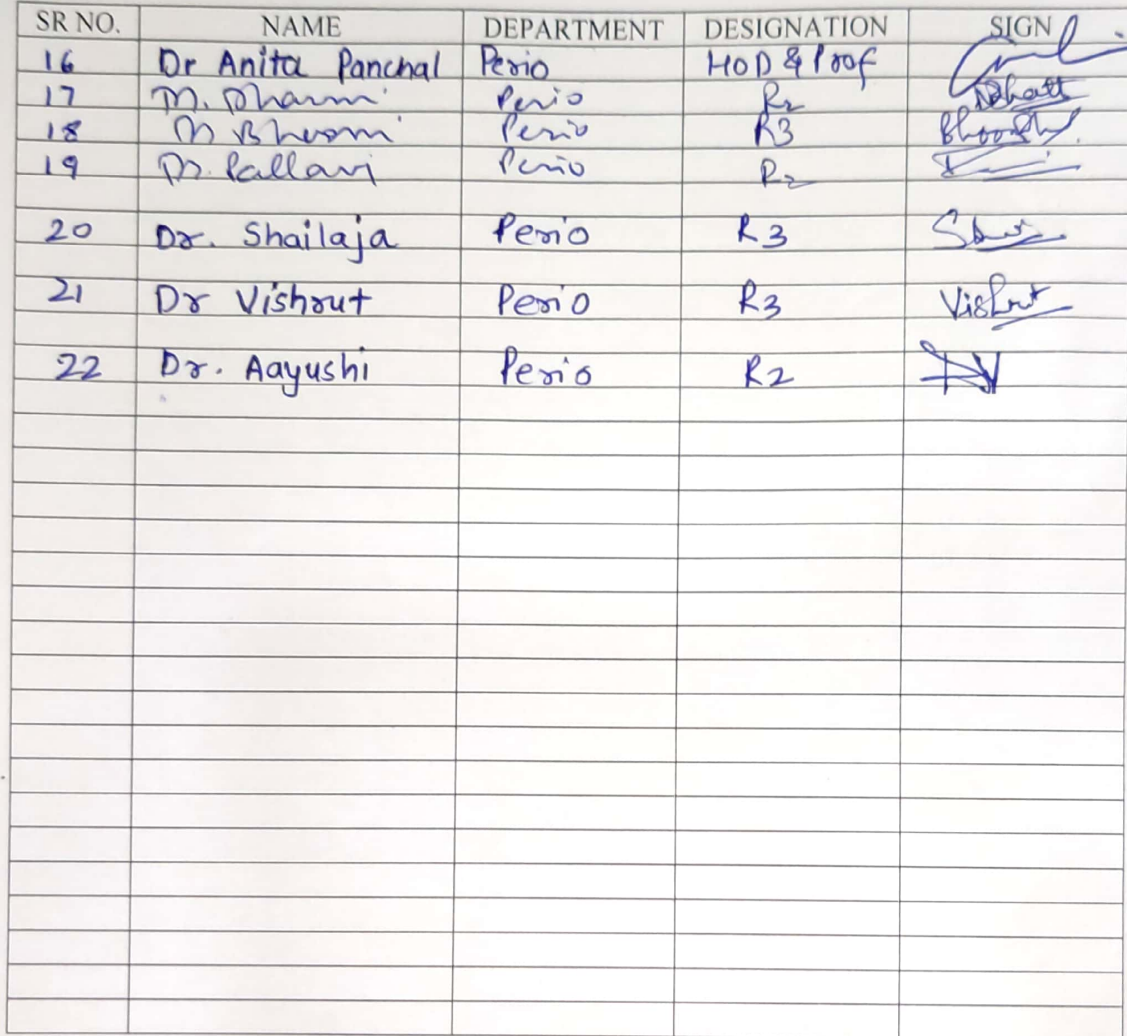 SR NO. NAME DEPARTMENT DESIGNATION SIGN
16 Dr Anita Panchal Perio HOD & Prof
17 Dr. Dharmi Perio R2 Bhatt
18 Dr Bhoomi Perio R3
19 Dr. Pallavi Perio R2
20 Dr. Shailaja Perio R3
21 Dr Vishrut Perio R3 Vishrut
22 Dr. Aayushi Perio R2